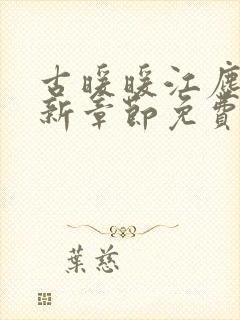 古暖暖江塵
新章節免費
葉慈